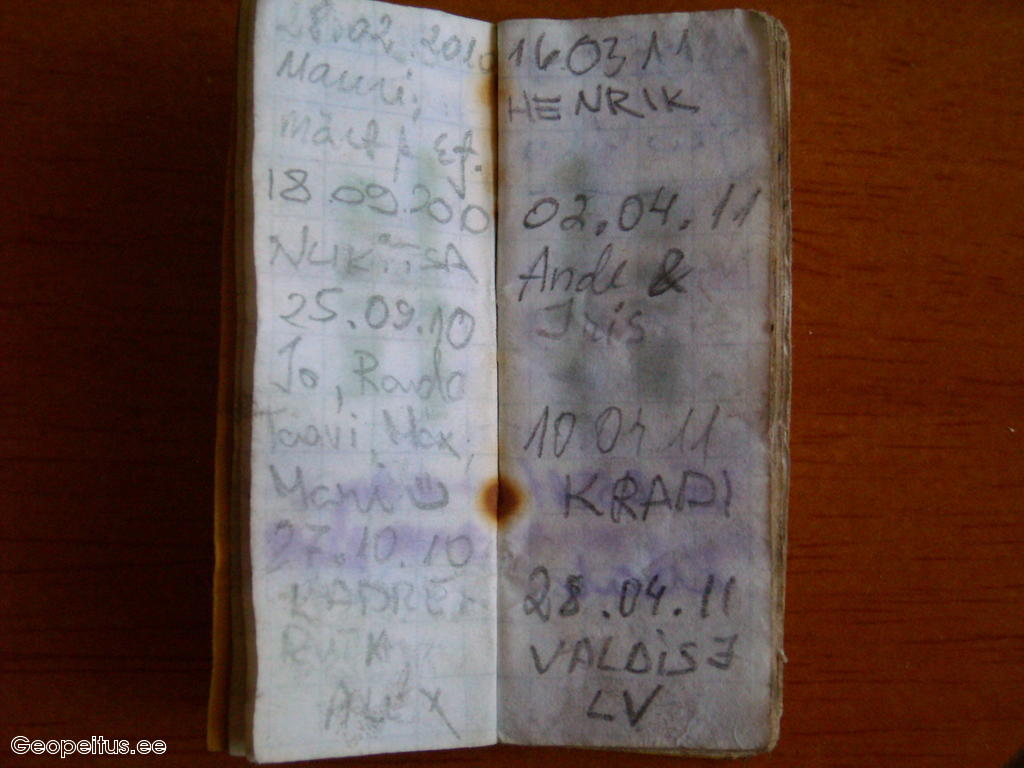 28.02.2010
Mauri,
18.09.200
25.09.10
Jo, Rando
Taavi, Max,
27.10.10
ALEX
16.03 11
HENRIK
02.04.11
Ande &
Iris
10 04 11
KRAPI
28.04.11
VALDIS J
LV
Geopeitus.ee